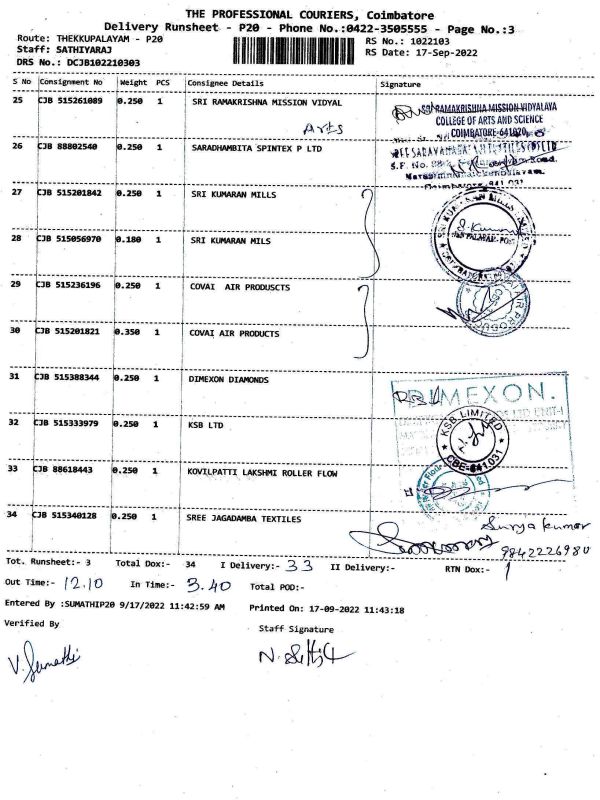 THE PROFESSIONAL COURIERS, Coimbatore
Delivery Runsheet - P20 - Phone No.:0422-3505555 - Page No.:3
Route: THEKKUPALAYAM - P20
RS No.: 1022103
Staff: SATHIYARAJ
RS Date: 17-Sep-2022
DRS No.: DCJB102210303
S No Consignment No Weight PCS Consignee Details Signature
25 CJB 515261089 0.250 1 SRI RAMAKRISHNA MISSION VIDYAL
Arts
SRI RAMAKRISHNA MISSION VIDYALAYA
COLLEGE OF ARTS AND SCIENCE
COIMBATORE-641020
26 CJB 88802540 0.250 1 SARADHAMBITA SPINTEX P LTD
27 CJB 515201842 0.250 1 SRI KUMARAN MILLS
28 CJB 515056970 0.180 1 SRI KUMARAN MILS
29 CJB 515236196 0.250 1 COVAI AIR PRODUSCTS
30 CJB 515201821 0.350 1 COVAI AIR PRODUCTS
31 CJB 515388344 0.250 1 DIMEXON DIAMONDS
DIMEXON.
32 CJB 515333979 0.250 1 KSB LTD
KSB LIMITED
CBE-641031
33 CJB 88618443 0.250 1 KOVILPATTI LAKSHMI ROLLER FLOW
34 CJB 515340128 0.250 1 SREE JAGADAMBA TEXTILES
Surya kumar
9842226980
Tot. Runsheet:- 3 Total Dox:- 34 I Delivery:- 33 II Delivery:- RTN Dox:- 1
Out Time:- 12.10 In Time:- 3.40 Total POD:-
Entered By :SUMATHIP20 9/17/2022 11:42:59 AM Printed On: 17-09-2022 11:43:18
Verified By
Staff Signature
V. Sumathi